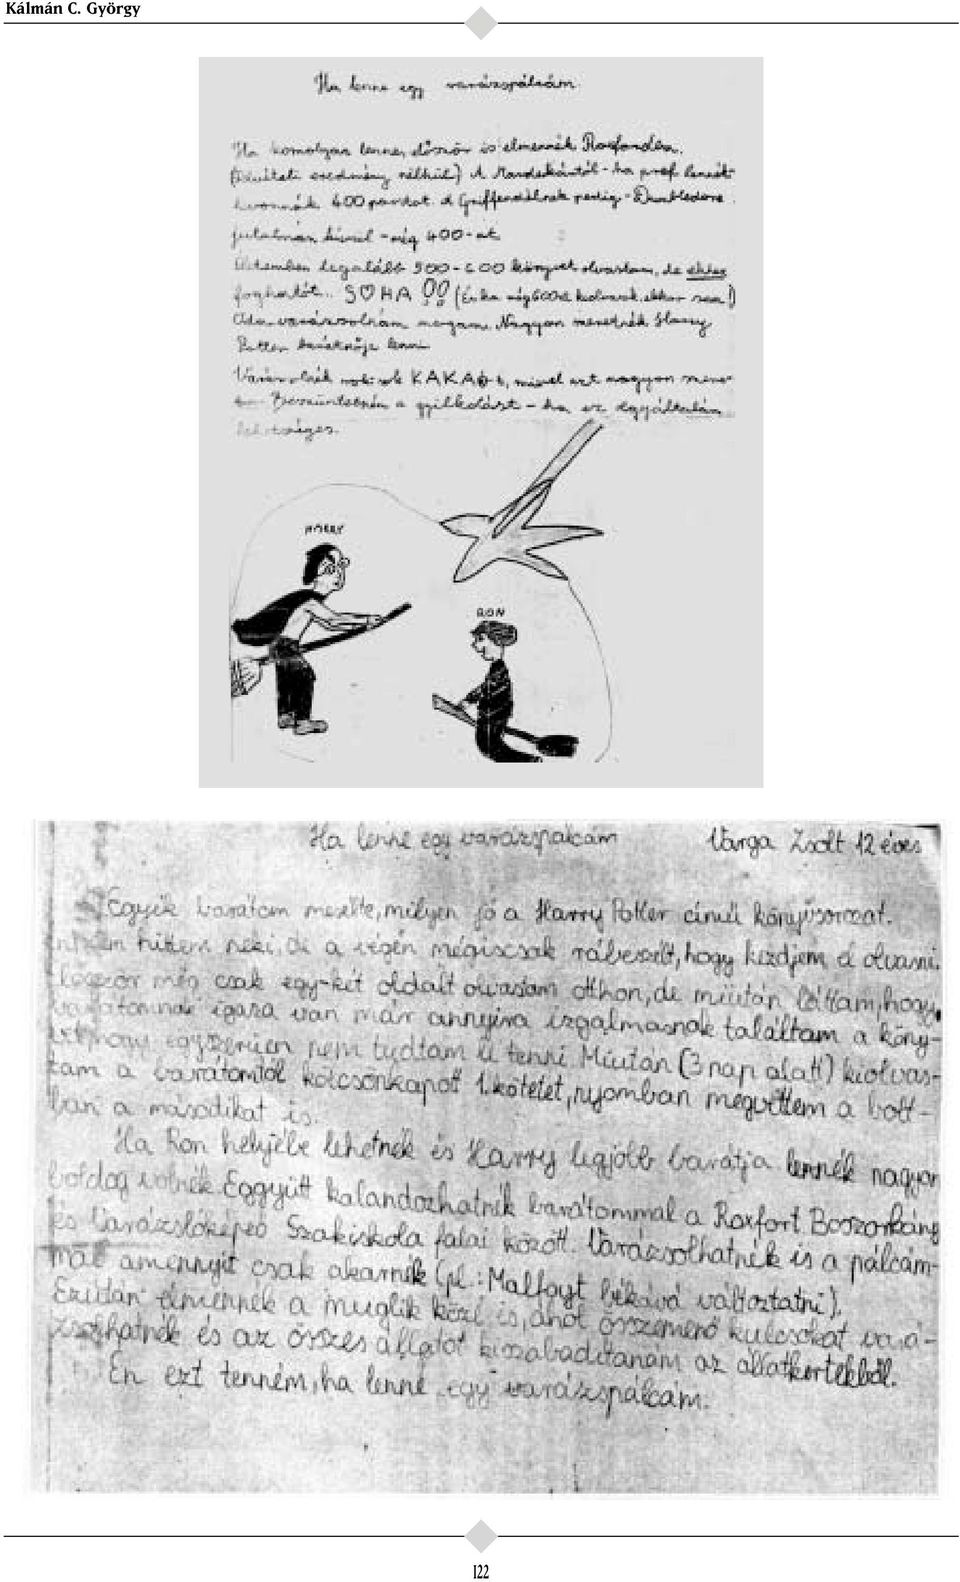 Kálmán C. György
Ha lenne egy varázspálcám
Ha komolyan lenne, először is elmennék Roxfordba.
eredmény nélkül) A Mardekártól - ha prof lennék
levonnék 400 pontot. A Griffendélnek pedig - Dumbledore
jutalmán kívül - még 400-at
Életemben legalább 500-600 könyvet olvastam, de
foghatót.. SOHA !! (És ha még 600at kiolvasok, akkor sem!)
Oda varázsolnám magam. Nagyon szeretnék Harry
Potter barátnője lenni.
Varázsolnék sok-sok KAKAÓ-t, mivel azt nagyon szere-
tem. Beszüntetném a gyilkolást - ha ez egyáltalán
lehetséges.
HARRY
RON
Ha lenne egy varázspálcám Varga Zsolt 12 éves
Egyik barátom mesélte, milyen jó a Harry Potter című könyvsorozat.
nem hittem neki, de a végén mégiscsak rábeszélt, hogy kezdjem el olvasni.
még csak egy-két oldalt olvastam otthon, de miután láttam, hogy
barátomnak igaza van már annyira izgalmasnak találtam a köny-
vet, hogy egyszerűen nem tudtam le tenni. Miután (3 nap alatt) kiolvas-
tam a barátomtól kölcsönkapott 1. kötetet, nyomban megvettem a bolt-
ban a másodikat is.
Ha Ron helyébe lehetnék és Harry legjobb barátja lennék nagyon
boldog volnék. Eggyütt kalandozhatnék barátommal a Roxfort Boszorkány
és Varázslóképző Szakiskola falai között. Varázsolhatnék is a pálcám-
mal amennyit csak akarnék (pl.: Malfoyt békává változtatni).
Ezután elmennék a muglik közé is, ahol összemenő kulcsokat vará-
zsolhatnék és az összes állatot kiszabadítanám az állatkertekből.
Én ezt tenném, ha lenne egy varázspálcám.
122